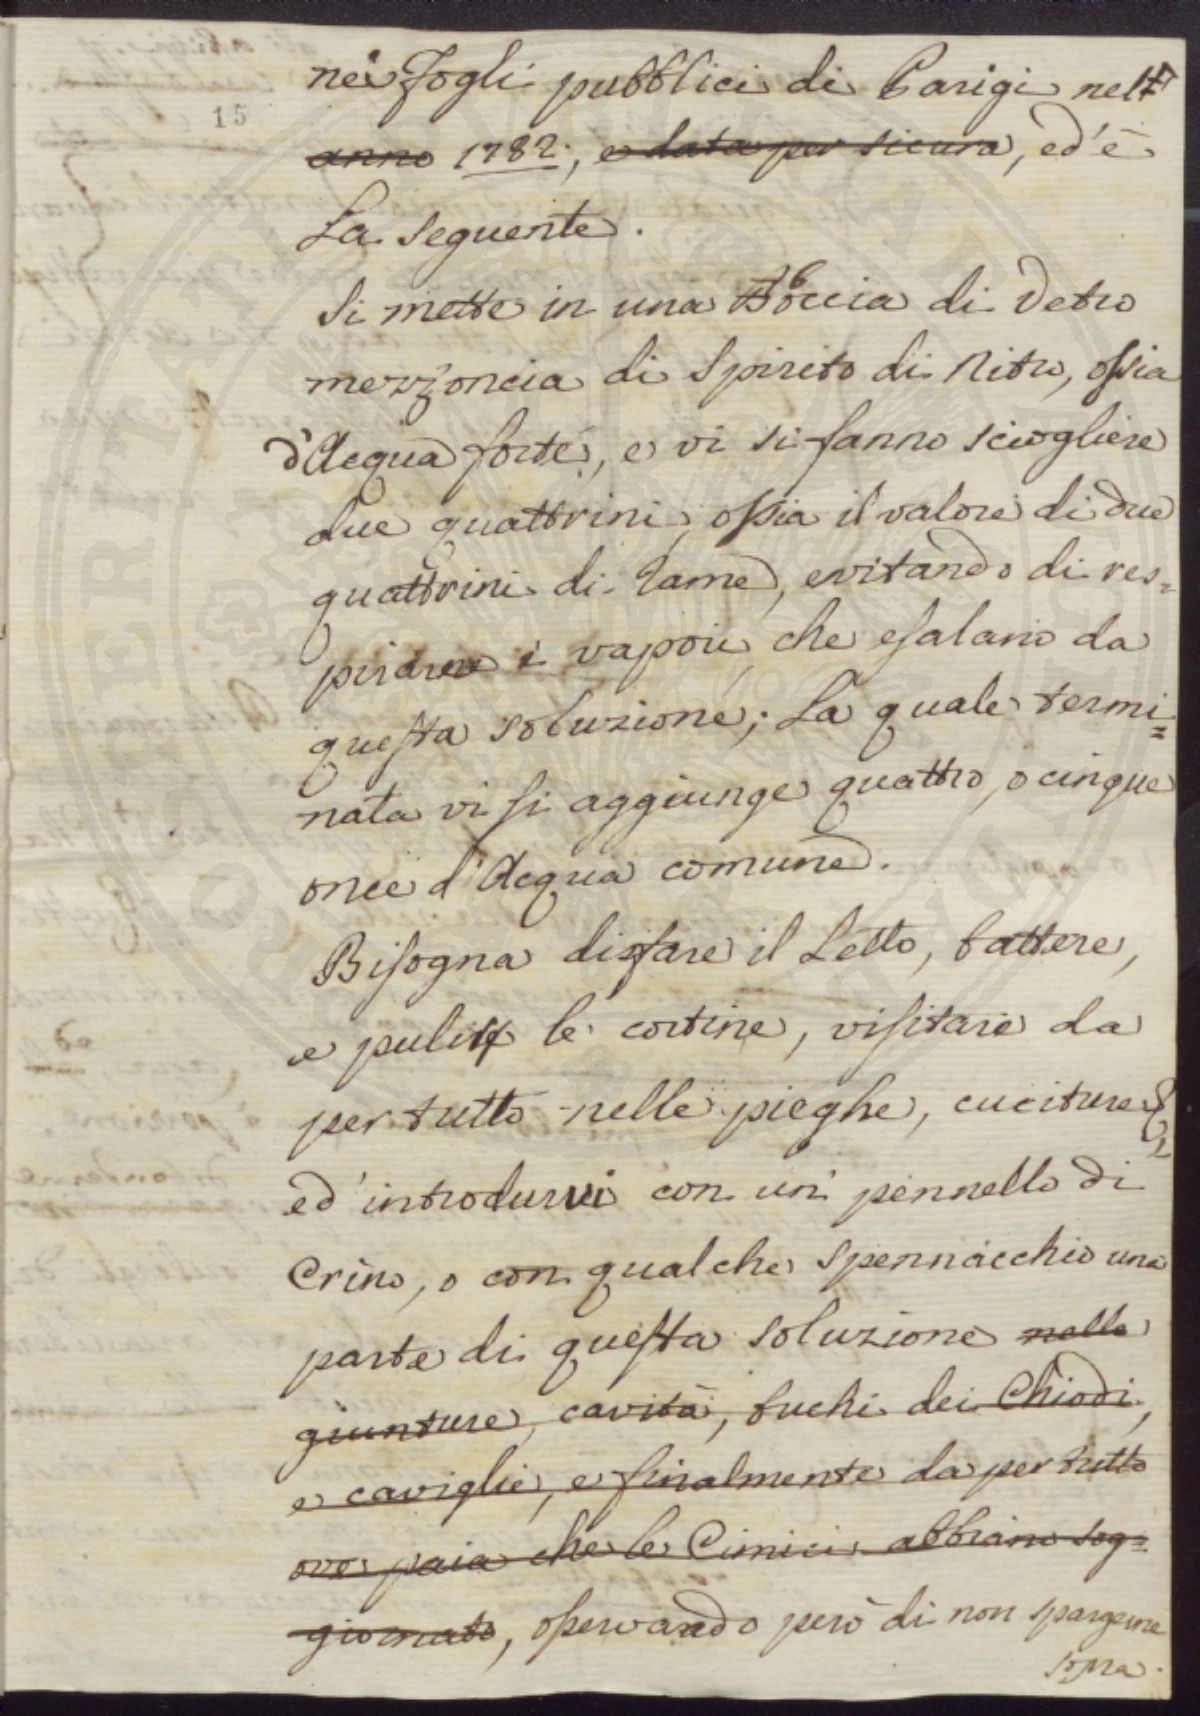 15
nei Fogli pubblici di Parigi nel
anno 1782., e data per sicura, ed è
La seguente.
Si mette in una Boccia di Vetro
mezz'oncia di Spirito di Nitro, ossia
d'Acqua forte, e vi si fanno sciogliere
due quattrini, ossia il valore di due
quattrini di Rame, evitando di res=
pirare i vapori, che esalano da
questa soluzione; La quale termi=
nata vi si aggiunge quattro, o cinque
once d'Acqua comune.
Bisogna disfare il Letto, battere,
e pulire le cortine, visitare da
per tutto nelle pieghe, cuciture
ed' introdurvi con un' pennello di
Crino, o con qualche spennacchio una
parte di questa soluzione nelle
giunture, cavità, buchi dei Chiodi,
e caviglie, e finalmente da per tutto
ove paia che le Cimici abbiano sog=
giornato, osservando però di non spargerne
sopra.